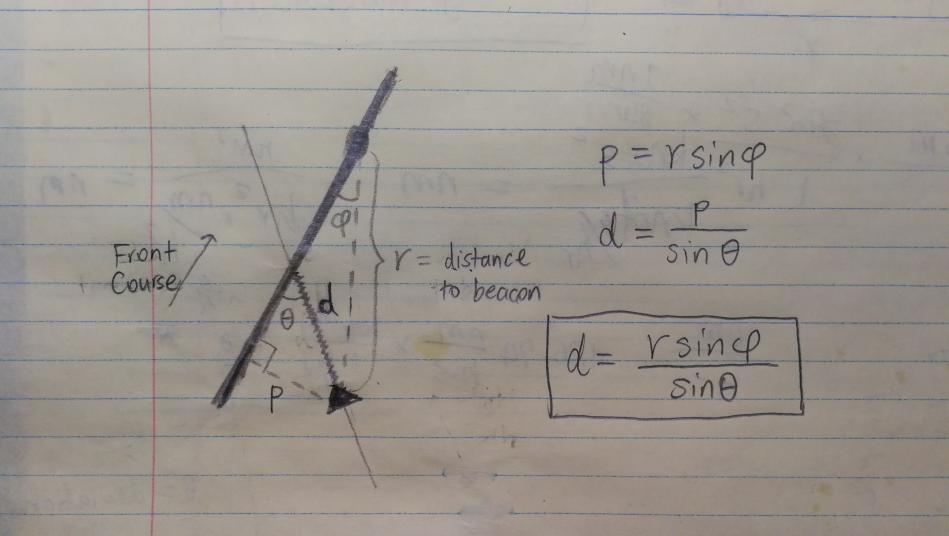 Front
Course
φ
r = distance
to beacon
d
θ
p
p = r sinφ
d = p / sin θ
d = r sinφ / sinθ